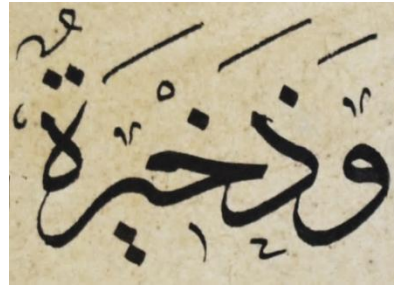 وَذَخِيْرَةٌ